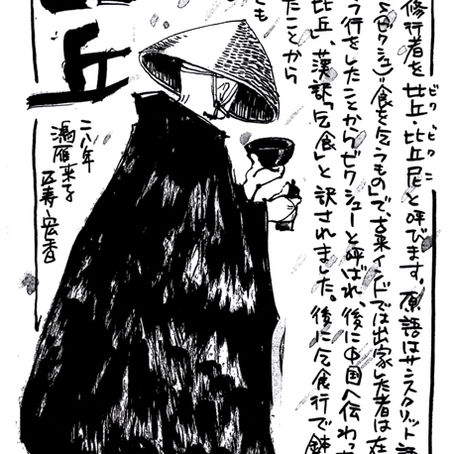 修行者を比丘・比丘尼と呼びます。原語はサンスクリット語
(ビクシュ)="食を乞うもの"で、古来インドでは出家した者は在
う行をしたことからビクシューと呼ばれ、後に中国へ伝わっ
比丘」、漢訳「乞食」と訳されました。後に乞食行で錬
たことから
とも
丘
二八年
鴻雁来